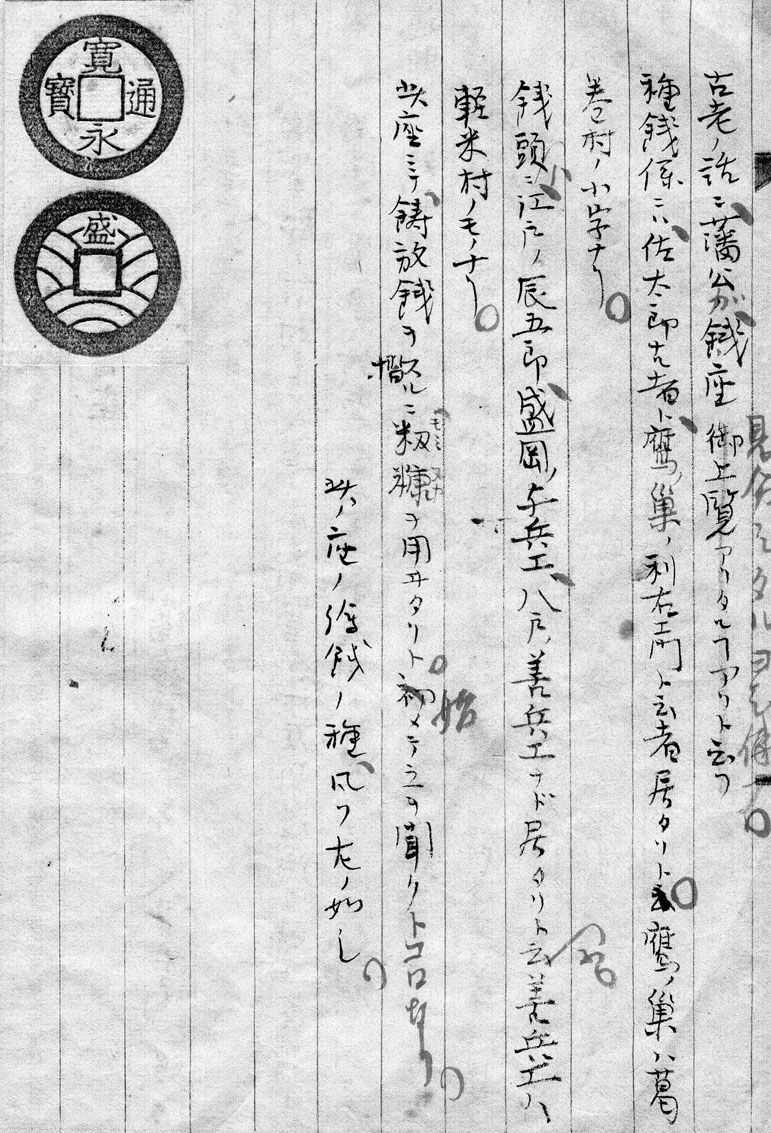 古老ノ話ニ、藩公ガ、銭座御上覧アリタルヿアリト云フ
種銭係ニハ、佐太郎ナル者ト、鷹ノ巣ノ利右エ門ト云者居タリト云。鷹ノ巣ハ葛
巻村ノ小字ナリ。
銭頭ニ、江戸ノ辰五郎、盛岡ノ与兵エ、八戸ノ善兵エナド居タリト云。善兵エハ
軽米村ノモノナリ。
此座ニテ、鋳放銭ヲ擦スルニ籾糠ヲ用ヰタリト。初メテ之ヲ聞クトコロなり。
モミヌカ
始
此ノ座ノ鋳銭ノ種、凡ソ左ノ如し。
寛永通寳
盛